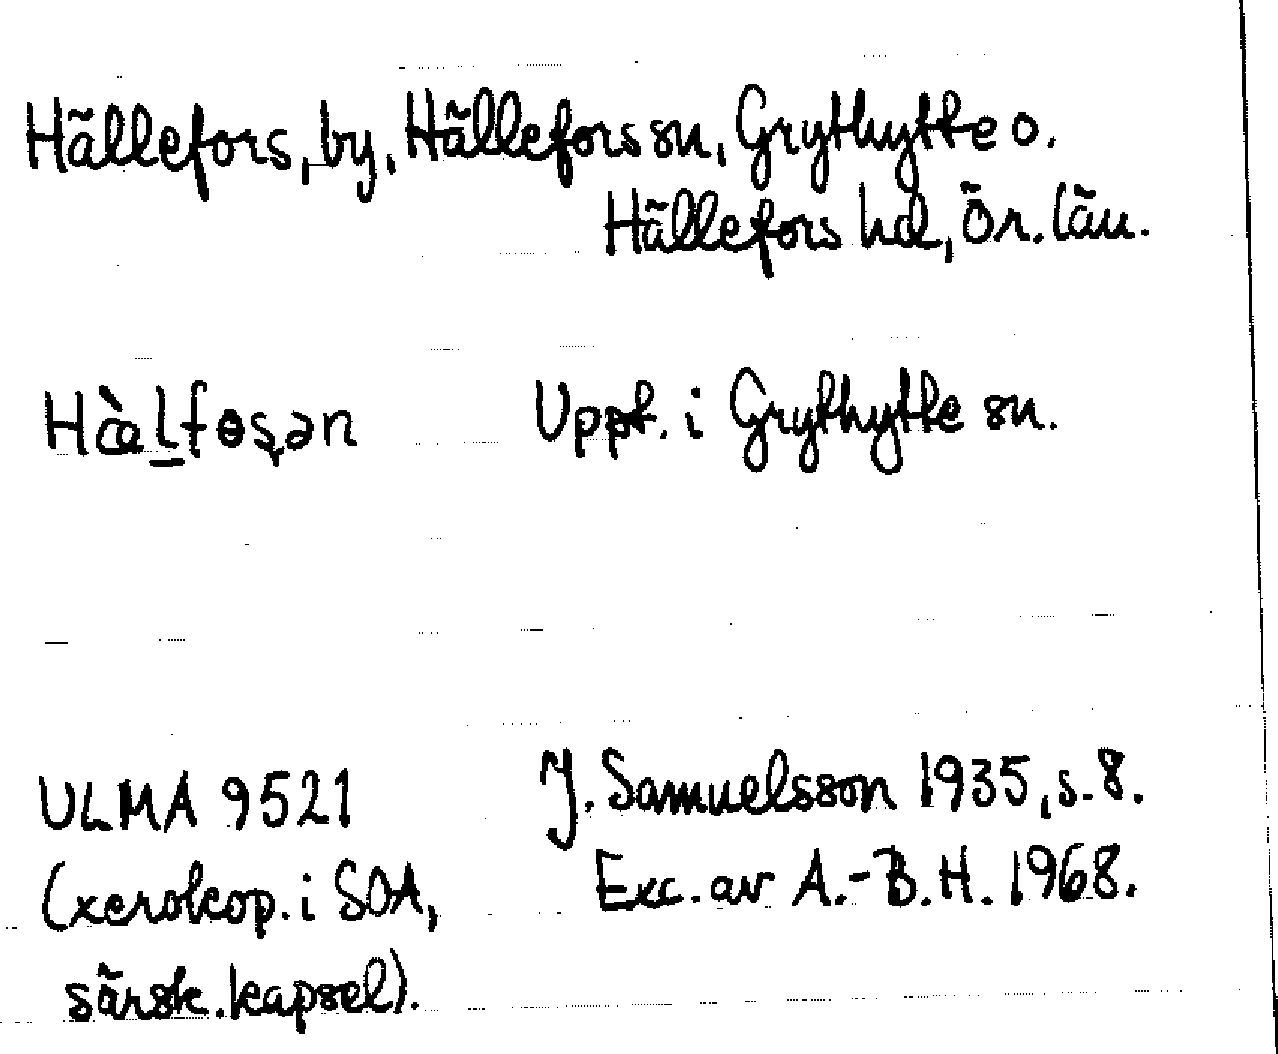 Hällefors, by, Hällefors sn, Grythytte o.
Hällefors hd, Ör. län.
Hàl̲fɵʂən Uppt. i Grythytte sn.
ULMA 9521 J. Samuelsson 1935, s. 8.
(xerokop. i SOA, Exc. av A.-B.H. 1968.
särsk. kapsel).